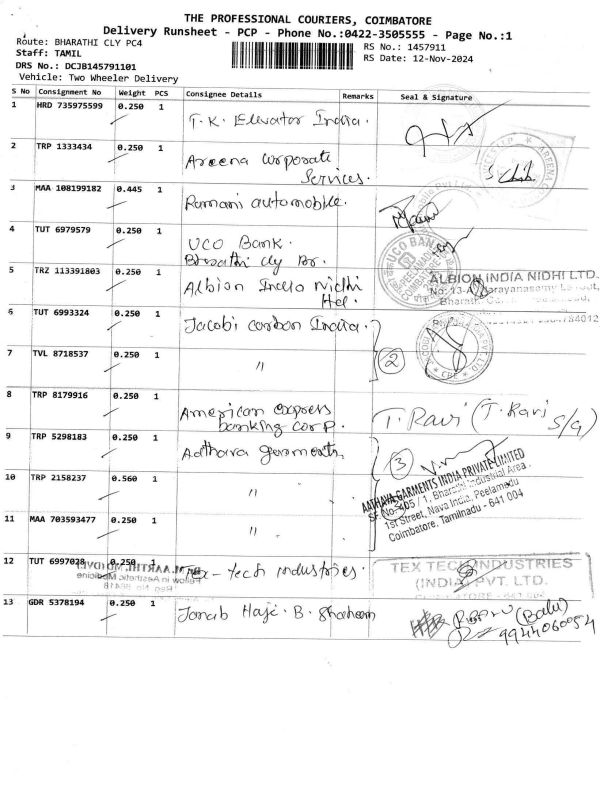 THE PROFESSIONAL COURIERS, COIMBATORE
Delivery Runsheet - PCP - Phone No.:0422-3505555 - Page No.:1
Route: BHARATHI CLY PC4
RS No.: 1457911
Staff: TAMIL
RS Date: 12-Nov-2024
DRS No.: DCJB145791101
Vehicle: Two Wheeler Delivery
S No Consignment No Weight PCS Consignee Details Remarks Seal & Signature
1 HRD 735975599 0.250 1 T.K. Elevator India.
2 TRP 1333434 0.250 1 Areena Corporate
Services.
3 MAA 108199182 0.445 1 Ramani automobile.
4 TUT 6979579 0.250 1 UCO Bank.
Bharathi cly Br.
UCO BANK
5 TRZ 113391803 0.250 1 Albion India Nidhi
Ltd.
ALBION INDIA NIDHI LTD.
6 TUT 6993324 0.250 1 Jacobi carbon India.
7 TVL 8718537 0.250 1 〃 2
8 TRP 8179916 0.250 1 American express
banking corp. T. Ravi (T. Ravi
S/G)
9 TRP 5298183 0.250 1 Aathava garments 3
10 TRP 2158237 0.560 1 〃
11 MAA 703593477 0.250 1 〃
AATHAVA GARMENTS INDIA PRIVATE LIMITED
SF No-405 / 1, Bharathi Industrial Area,
1st Street, Nava India, Peelamedu
Coimbatore, Tamilnadu - 641 004
12 TUT 6997028 0.250 1 Tex-tech industries.
TEX TECH INDUSTRIES
(INDIA) PVT. LTD.
13 GDR 5378194 0.250 1 Janab Haji. B. Shaheem
(Balu)
9944060054